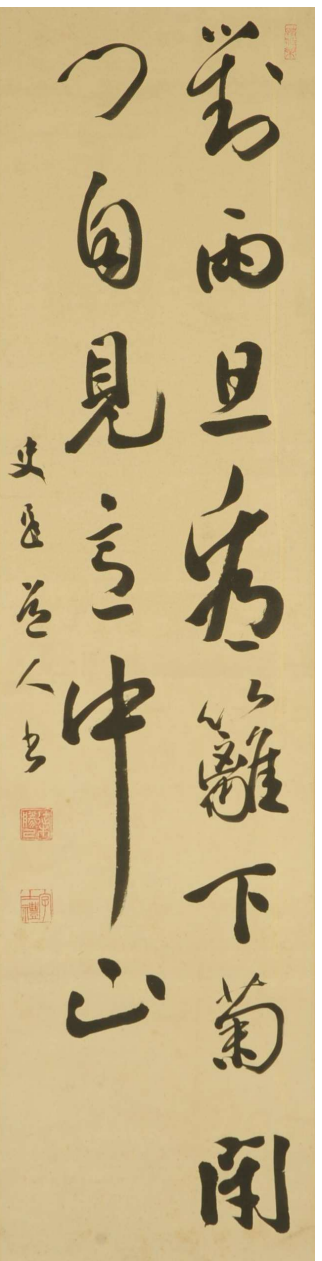 對雨且看籬下菊開
門自見意中山
史邑道人書